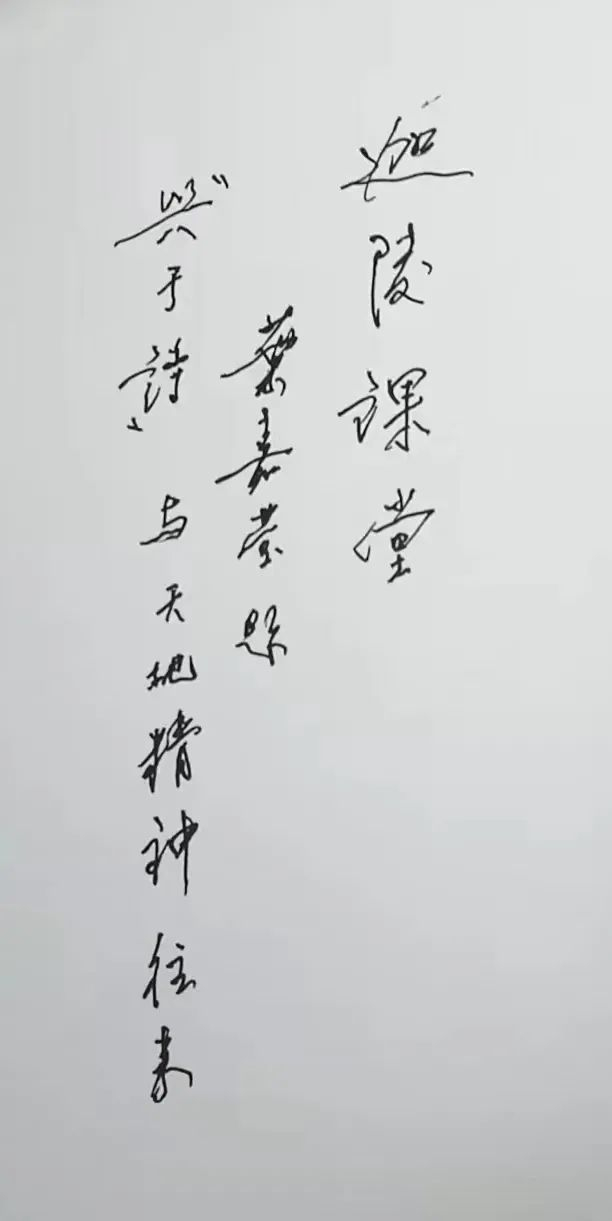 迦陵課堂
葉嘉瑩題
“興于詩”与天地精神往来